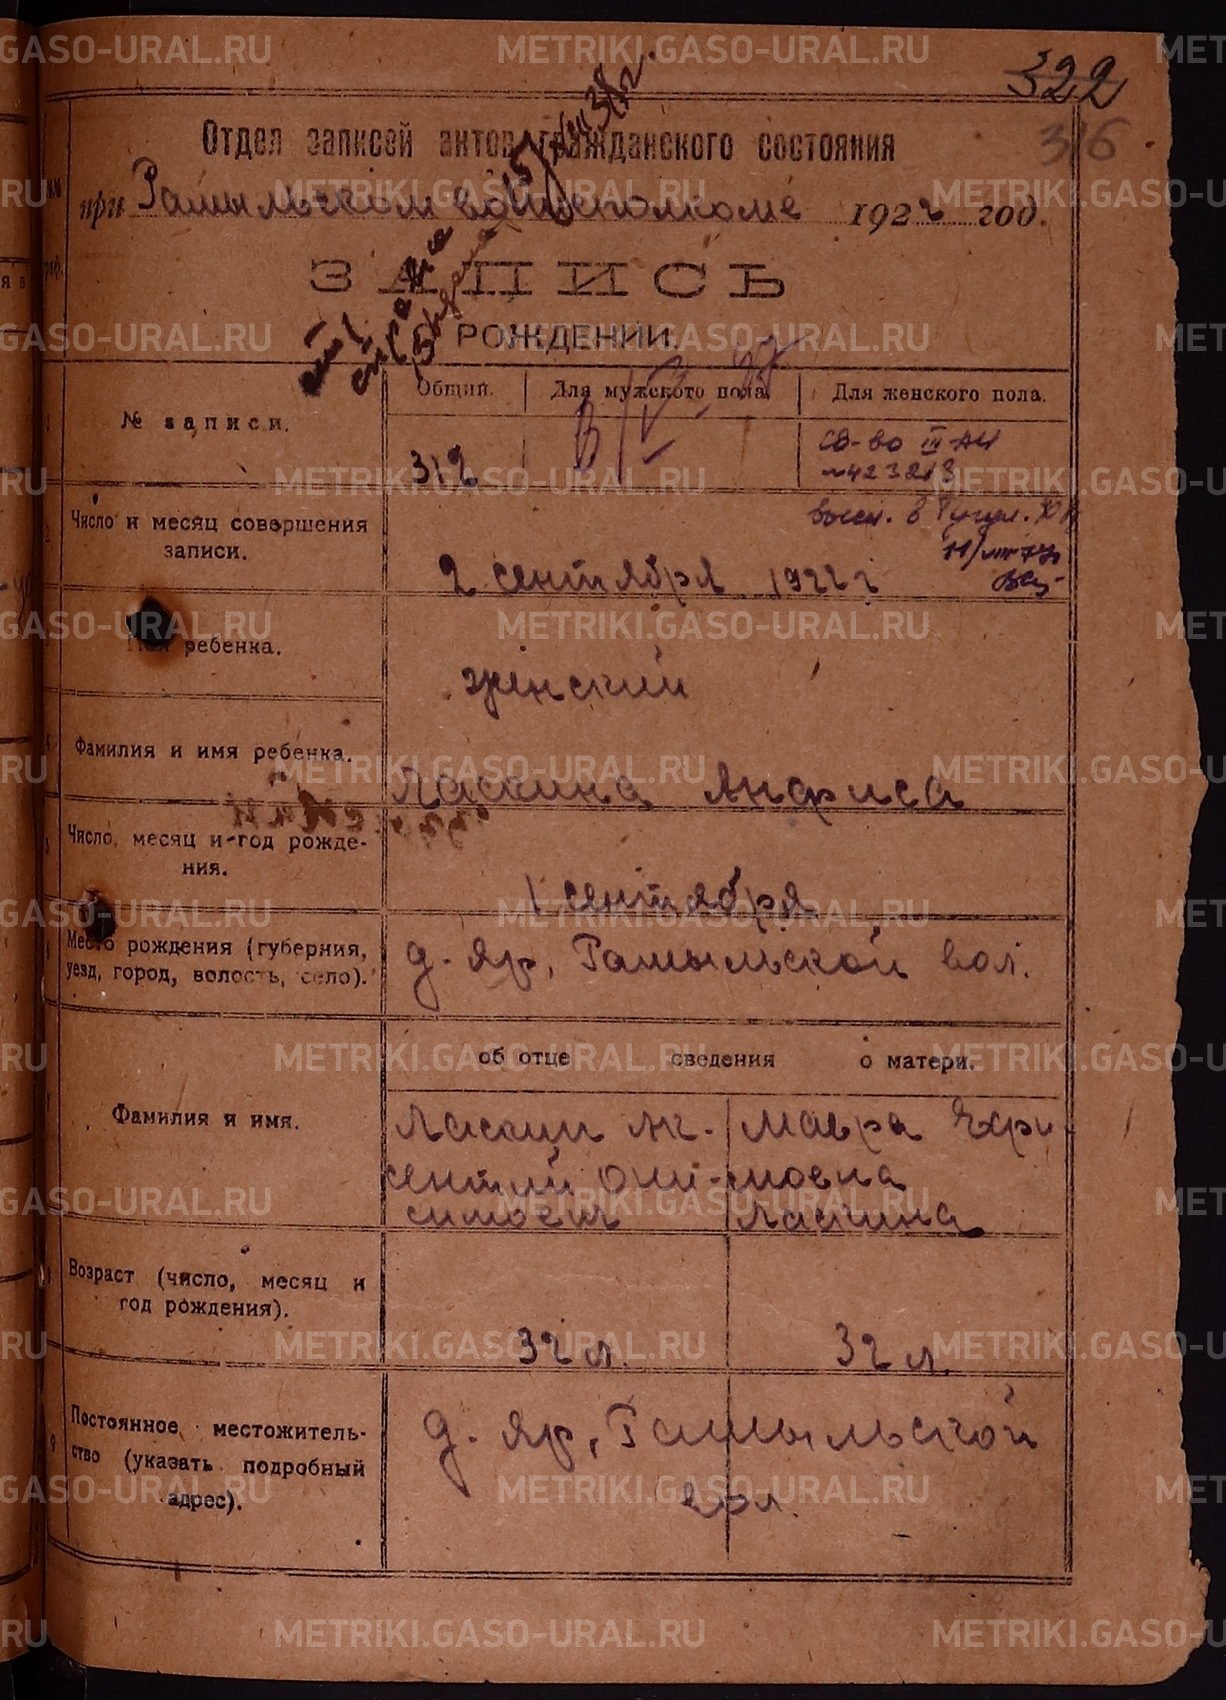 322
316
Отдел записей актов гражданского состояния
при волисполкоме 1922 год.
ЗАПИСЬ
РОЖДЕНИИ.
№ записи.
Общий.
Для мужского пола.
Для женского пола.
312
св-во III-АИ
№423213
Число и месяц совершения
записи.
2 сентября 1922 г
ребенка.
женский
Фамилия и имя ребенка.
Ласкина Анфиса
Число, месяц и год рожде-
ния.
1 сентября
Место рождения (губерния,
уезд, город, волость, село).
д. Яр, вол.
об отце сведения о матери.
Фамилия и имя.
Ласкин Ак-
сентий Они-
симович
Мавра Ехри
моевна
Ласкина
Возраст (число, месяц и
год рождения).
32 л.
32 л.
Постоянное местожитель-
ство (указать подробный
адрес).
д. Яр,
вол.
METRIKI.GASO-URAL.RU